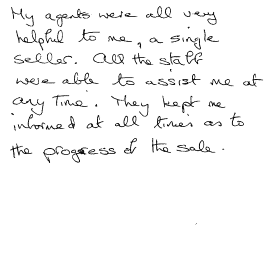 My agents were all very
helpful to me, a single
seller. All the staff
were able to assist me at
any time. They kept me
informed at all times as to
the progress of the sale.